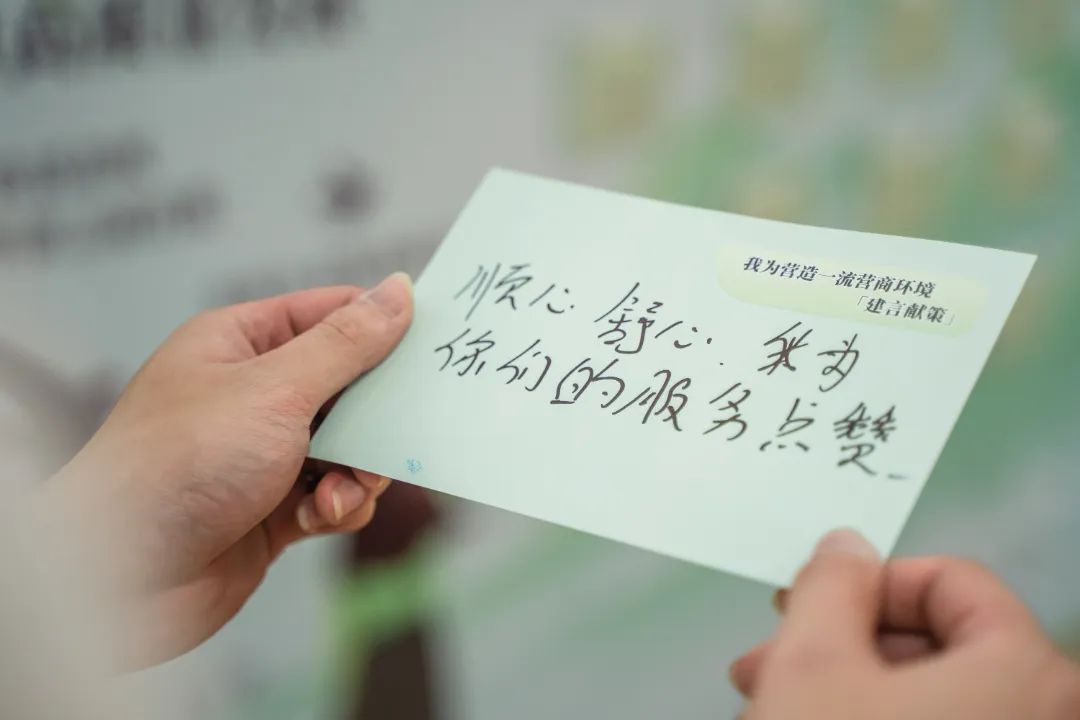 我为营造一流营商环境
「建言献策」
顺心.舒心.我为
你们的服务点赞